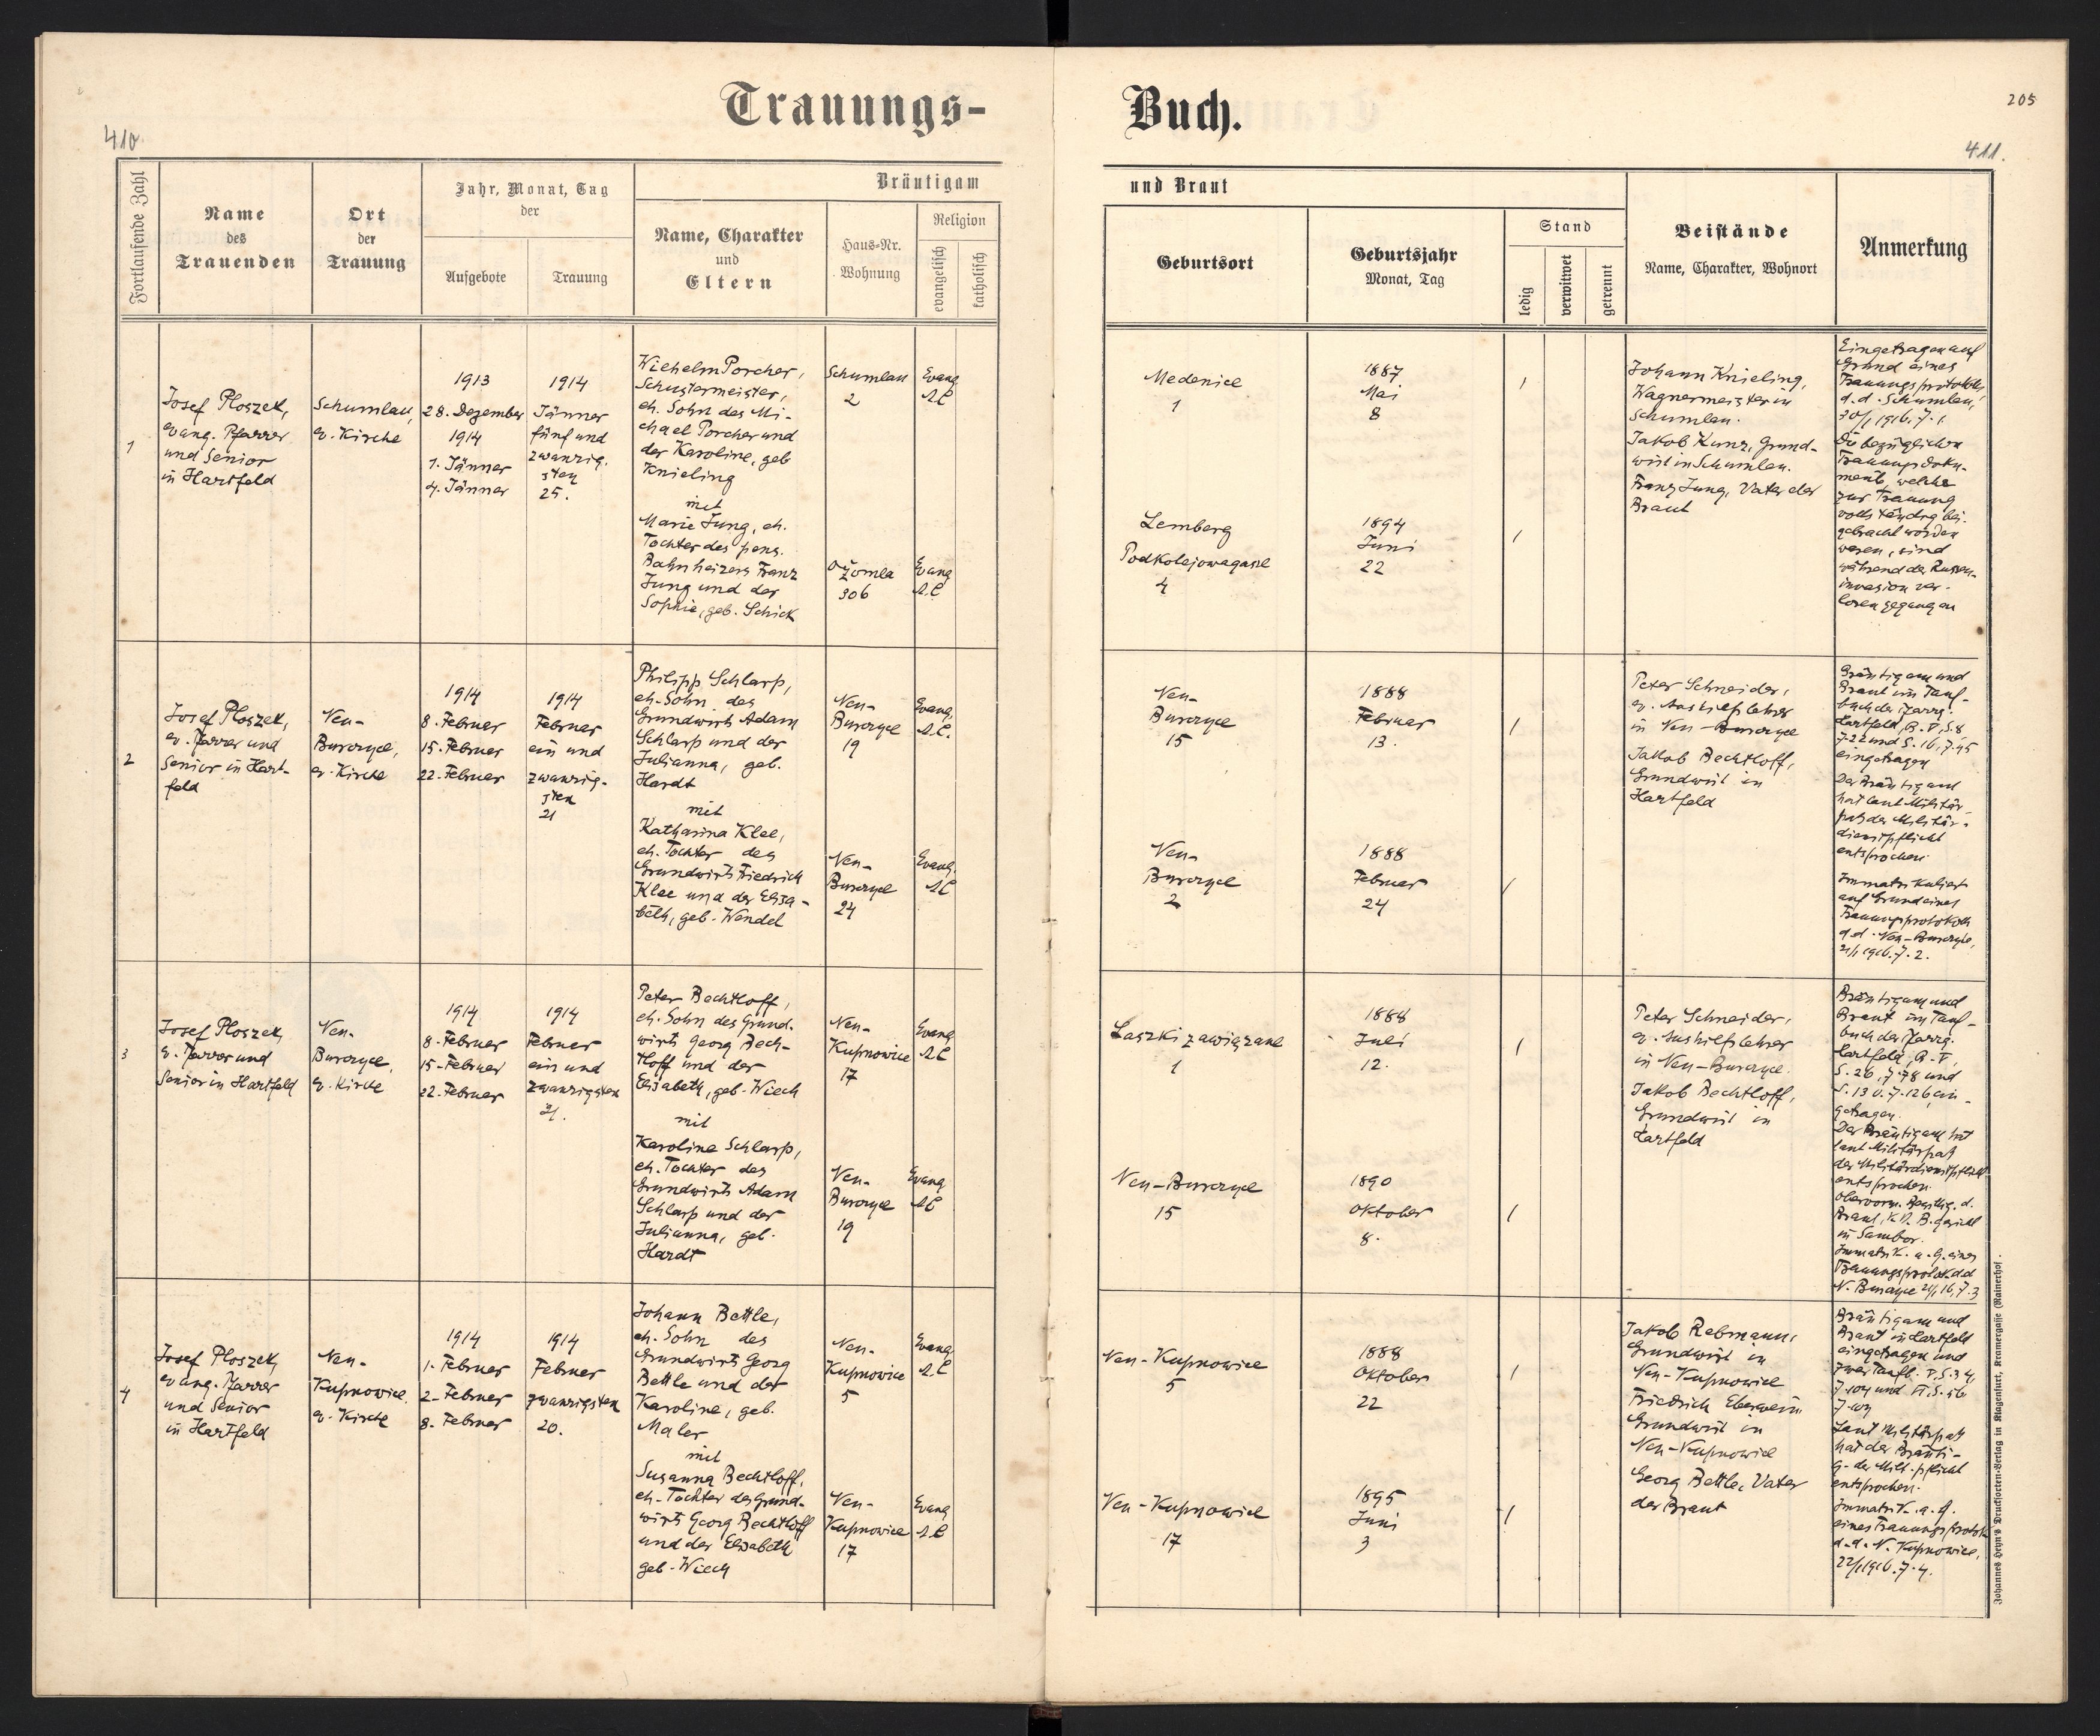 Trauungs-
Buch.
205
410
411.
Fortlaufende Zahl
Name
des
Trauenden
Ort
der
Trauung
Jahr, Monat, Tag
der
Aufgebote
Trauung
Bräutigam
Name, Charakter
und
Eltern
Haus-Nr.
Wohnung
Religion
evangelisch
katholisch
und Braut
Geburtsort
Geburtsjahr
Monat, Tag
Stand
ledig
verwitwet
getrennt
Beistände
Name, Charakter, Wohnort
Anmerkung
1
Josef Ploszek,
evang. Pfarrer
und Senior
in Hartfeld
Schumlau,
ev. Kirche
1913
28. Dezember
1914
1. Jänner
4. Jänner
1914
Jänner
fünf und
zwanzig-
sten
25.
Wilhelm Porcher,
Schustermeister,
eh. Sohn des Mi-
chael Porcher und
der Karoline, geb
Knieling
mit
Marie Jung, eh.
Tochter des pens.
Bahnheizers Franz
Jung und der
Sophie, geb. Schick
Schumlau
2
Evang
A.C
Ożomla
306
Evang
A.C
Medenice
1
1887
Mai
8
Lemberg
Podkolejowagasse
4
1894
Juni
22
Johann Knieling,
Wagnermeister in
Schumlau.
Jakob Kunz, Grund-
wirt in Schumlau.
Franz Jung, Vater der
Braut
Eingetragen auf
Grund eines
Trauungsprotokolls
d.d. Schumlau,
30/1 1916. 7. 1.
Die bezüglichen
Trauungsdoku-
mente, welche
zur Trauung
vollständig bei-
gebracht worden
waren, sind
während der Russen-
invasion ver-
loren gegangen
2
Josef Ploszek,
ev. Pfarrer und
Senior in Hart-
feld
Neu-
Burczyce,
ev. Kirche
1914
8. Februar
15. Februar
22. Februar
1914
Februar
ein und
zwanzig-
sten
21
Philipp Schlarp,
eh. Sohn des
Grundwirts Adam
Schlarp und der
Julianna, geb.
Hardt
mit
Katharina Klee,
eh. Tochter des
Grundwirts Friedrich
Klee und der Elisa-
beth, geb. Wendel
Neu-
Burczyce
19
Evang.
A.C.
Neu-
Burczyce
24
Evang.
A.C
Neu-
Burczyce
15
1888
Februar
13.
Neu-
Burczyce
2
1888
Februar
24
Peter Schneider,
ev. Aushilfslehrer
in Neu-Burczyce
Jakob Bechtloff,
Grundwirt in
Hartfeld
Bräutigam und
Braut im Tauf-
buch der Pfarrg.
Hartfeld, B. V, S. 8,
7.22 und S. 16, 7.45
eingetragen
Der Bräutigam
hat laut Militär-
paß der Militär-
dienstpflicht
entsprochen.
Immatrikuliert
auf Grund eines
Trauungsprotokolls
d.d. Neu-Burczyce,
21/1 1916. 7. 2.
3
Josef Ploszek,
ev. Pfarrer und
Senior in Hartfeld
Neu-
Burczyce,
ev. Kirche
1914
8. Februar
15. Februar
22. Februar
1914
Februar
ein und
zwanzigsten
21.
Peter Bechtloff,
eh. Sohn des Grund-
wirts Georg Bech-
tloff und der
Elisabeth, geb. Wiech
mit
Karoline Schlarp,
eh. Tochter des
Grundwirts Adam
Schlarp und der
Julianna, geb.
Hardt
Neu-
Kupnowice
17
Evang
A.C
Neu-
Burczyce
19
Evang
A.C
Laszki zawiązane
1
1888
Juli
12.
Neu-Burczyce
15
1890
Oktober
8.
Peter Schneider,
ev. Aushilfslehrer
in Neu-Burczyce.
Jakob Bechtloff,
Grundwirt in
Hartfeld
Bräutigam und
Braut im Tauf-
buch der Pfarrg.
Hartfeld, B. V,
S. 26, 7.78 und
S. 130. 7.126 ein-
getragen.
Der Bräutigam hat
laut Militärpaß
der Militärdienstpflicht
entsprochen.
Braut, k.k. B. gericht
in Sambor.
Immatrik. a. G. eines
Trauungsprotok. d.d
N. Burczyce 21/1 16, 7. 3
4
Josef Ploszek,
evang. Pfarrer
und Senior
in Hartfeld
Neu-
Kupnowice.
ev. Kirche
1914
1. Februar
2. Februar
8. Februar
1914
Februar
zwanzigsten
20.
Johann Bettle,
eh. Sohn des
Grundwirts Georg
Bettle und der
Karoline, geb.
Maler
mit
Susanna Bechtloff,
eh. Tochter des Grund-
wirts Georg Bechtloff
und der Elisabeth
geb. Wiech
Neu-
Kupnowice
5
Evang
A.C
Neu-
Kupnowice
17
Evang
A.C
Neu-Kupnowice
5
1888
Oktober
22
Neu-Kupnowice
17
1895
Juni
3
Jakob Rebmann,
Grundwirt in
Neu-Kupnowice
Friedrich Eberwein
Grundwirt in
Neu-Kupnowice
Georg Bettle, Vater
der Braut
Bräutigam und
Braut in Hartfeld
eingetragen und
Laut Militärpaß
hat der Bräuti-
g. der Milit.pflicht
entsprochen.
Immatrik. a. G.
eines Trauungsprotok
d.d. N. Kupnowice,
22/1 1916. 7. 4.
Johannes Heyn's Drucksorten-Verlag in Klagenfurt, Kramergasse (Rainerhof).